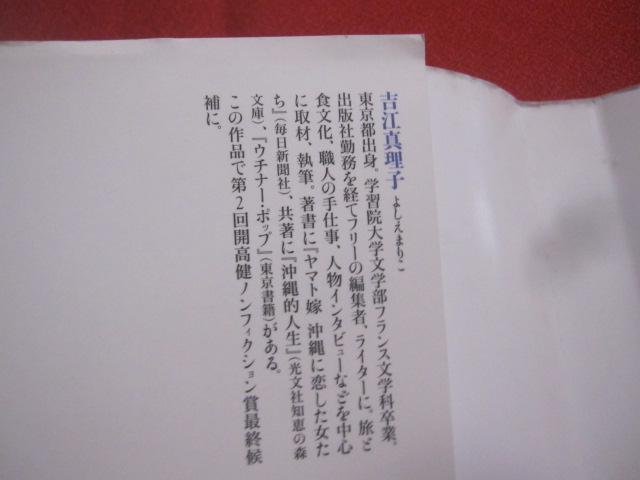 吉江真理子 よしえまりこ
東京都出身。学習院大学文学部フランス文学科卒業。
出版社勤務を経てフリーの編集者、ライターに。旅と
食文化、職人の手仕事、人物インタビューなどを中心
に取材、執筆。著書に『ヤマト嫁 沖縄に恋した女た
ち』(毎日新聞社)、共著に『沖縄的人生』(光文社知恵の森
文庫)、『ウチナー・ポップ』(東京書籍)がある。
この作品で第2回開高健ノンフィクション賞最終候
補に。